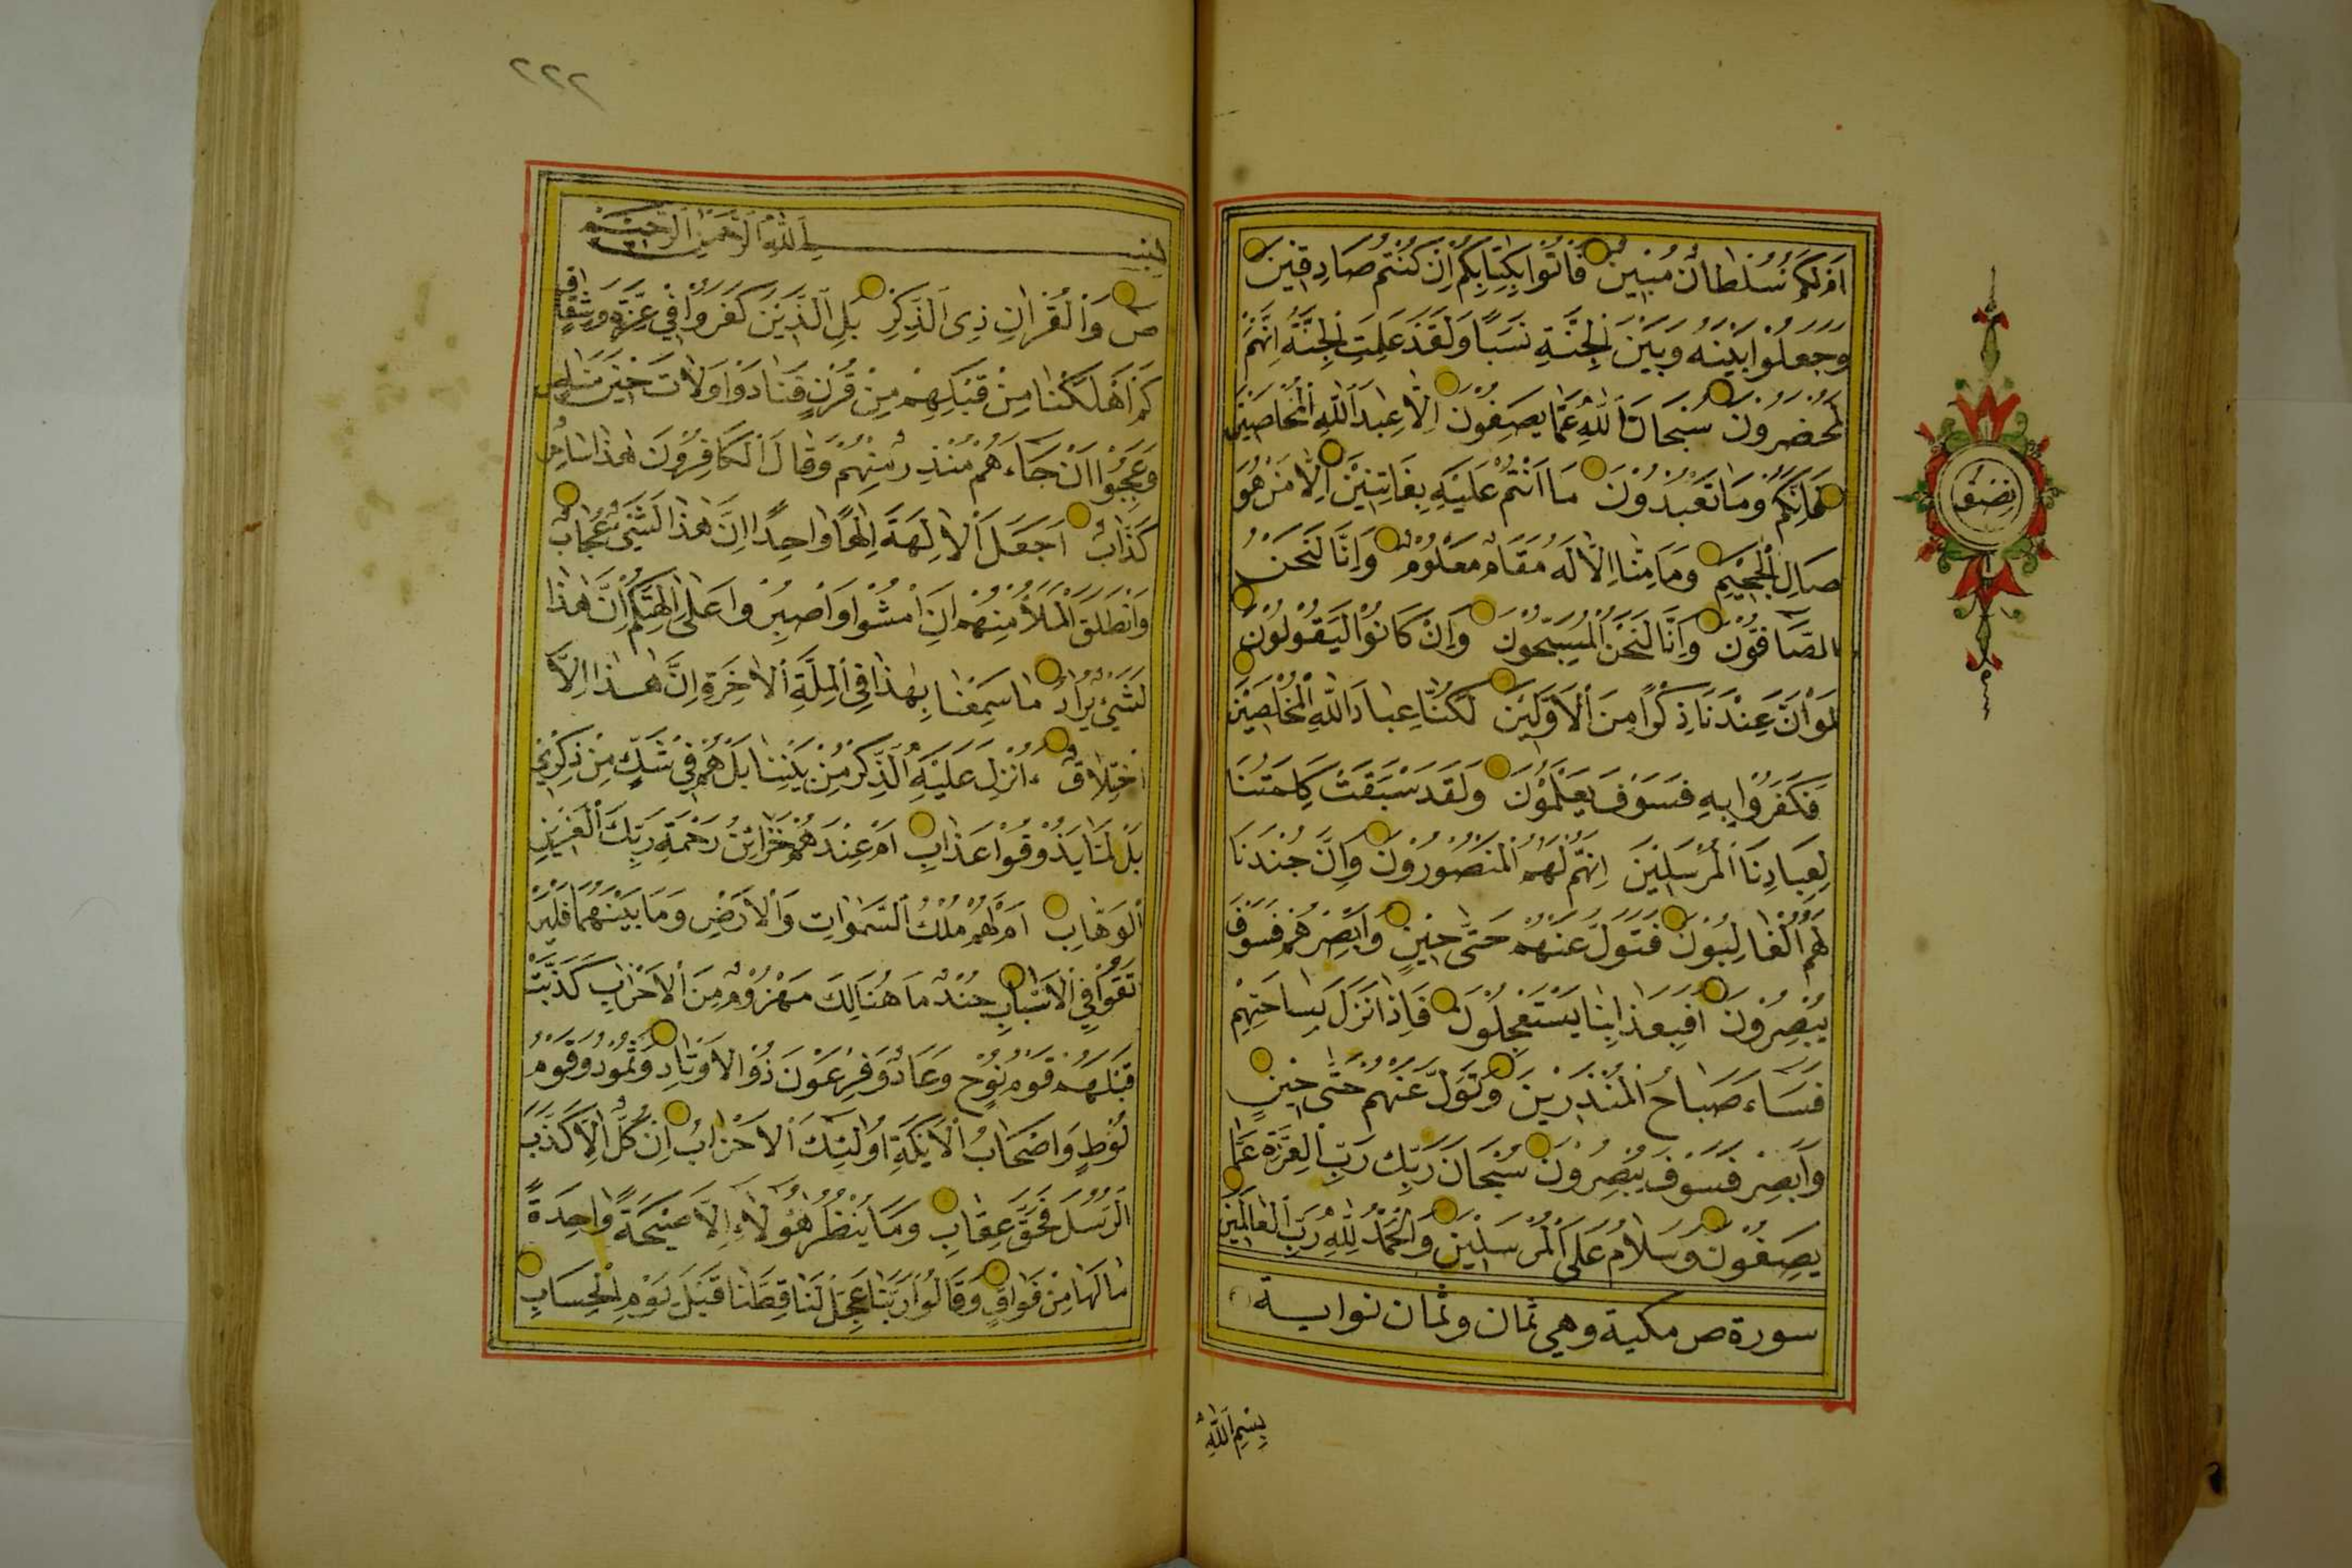 اَمْ لَكُمْ سُلْطَانٌ مُبِينٌ فَاْتُوا بِكِتَابِكُمْ اِنْ كُنْتُمْ صَادِقِينَ
وَجَعَلُوا بَيْنَهُ وَبَيْنَ الْجِنَّةِ نَسَبًا وَلَقَدْ عَلِمَتِ الْجِنَّةُ اِنَّهُمْ
لَمُحْضَرُونَ سُبْحَانَ اللّٰهِ عَمَّا يَصِفُونَ اِلَّا عِبَادَ اللّٰهِ الْمُخْلَصِينَ
فَاِنَّكُمْ وَمَا تَعْبُدُونَ مَا اَنْتُمْ عَلَيْهِ بِفَاتِنِينَ اِلَّا مَنْ هُوَ
صَالِ الْجَحِيمِ وَمَا مِنَّا اِلَّا لَهُ مَقَامٌ مَعْلُومٌ وَاِنَّا لَنَحْنُ
الصَّافُّونَ وَاِنَّا لَنَحْنُ الْمُسَبِّحُونَ وَاِنْ كَانُوا لَيَقُولُونَ
لَوْ اَنَّ عِنْدَنَا ذِكْرًا مِنَ الْاَوَّلِينَ لَكُنَّا عِبَادَ اللّٰهِ الْمُخْلَصِينَ
فَكَفَرُوا بِهِ فَسَوْفَ يَعْلَمُونَ وَلَقَدْ سَبَقَتْ كَلِمَتُنَا
لِعِبَادِنَا الْمُرْسَلِينَ اِنَّهُمْ لَهُمُ الْمَنْصُورُونَ وَاِنَّ جُنْدَنَا
لَهُمُ الْغَالِبُونَ فَتَوَلَّ عَنْهُمْ حَتَّى حِينٍ وَاَبْصِرْهُمْ فَسَوْفَ
يُبْصِرُونَ اَفَبِعَذَابِنَا يَسْتَعْجِلُونَ فَاِذَا نَزَلَ بِسَاحَتِهِمْ
فَسَاءَ صَبَاحُ الْمُنْذَرِينَ وَتَوَلَّ عَنْهُمْ حَتَّى حِينٍ
وَاَبْصِرْ فَسَوْفَ يُبْصِرُونَ سُبْحَانَ رَبِّكَ رَبِّ الْعِزَّةِ عَمَّا
يَصِفُونَ وَسَلَامٌ عَلَى الْمُرْسَلِينَ وَالْحَمْدُ لِلّٰهِ رَبِّ الْعَالَمِينَ
سورة ص مكية وهي ثمان وثمان
بِسْمِ اللّٰهِ
نصف
٢٢٢
بسم اللّٰهِ الرَّحْمٰنِ الرَّحِيمِ
ص وَالْقُرْاٰنِ ذِى الذِّكْرِ بَلِ الَّذِينَ كَفَرُوا فِي عِزَّةٍ وَشِقَاقٍ
كَمْ اَهْلَكْنَا مِنْ قَبْلِهِمْ مِنْ قَرْنٍ فَنَادَوْا وَلَاتَ حِينَ مَنَاصٍ
وَعَجِبُوا اَنْ جَاءَهُمْ مُنْذِرٌ مِنْهُمْ وَقَالَ الْكَافِرُونَ هٰذَا سَاحِرٌ
كَذَّابٌ اَجَعَلَ الْاٰلِهَةَ اِلٰهًا وَاحِدًا اِنَّ هٰذَا لَشَيْئٌ عُجَابٌ
وَانْطَلَقَ الْمَلَاُ مِنْهُمْ اَنِ امْشُوا وَاصْبِرُوا عَلٰى اٰلِهَتِكُمْ اِنَّ هٰذَا
لَشَيْئٌ يُرَادُ مَا سَمِعْنَا بِهٰذَا فِي الْمِلَّةِ الْاٰخِرَةِ اِنْ هٰذَا اِلَّا
اخْتِلَاقٌ ءَاُنْزِلَ عَلَيْهِ الذِّكْرُ مِنْ بَيْنِنَا بَلْ هُمْ فِي شَكٍّ مِنْ ذِكْرِي
بَلْ لَمَّا يَذُوقُوا عَذَابِ اَمْ عِنْدَهُمْ خَزَائِنُ رَحْمَةِ رَبِّكَ الْعَزِيزِ
الْوَهَّابِ اَمْ لَهُمْ مُلْكُ السَّمٰوَاتِ وَالْاَرْضِ وَمَا بَيْنَهُمَا فَلْيَرْ
تَقُوا فِي الْاَسْبَابِ جُنْدٌ مَا هُنَالِكَ مَهْزُومٌ مِنَ الْاَحْزَابِ كَذَّبَتْ
قَبْلَهُمْ قَوْمُ نُوحٍ وَعَادٌ وَفِرْعَوْنُ ذُو الْاَوْتَادِ وَثَمُودُ وَقَوْمُ
لُوطٍ وَاَصْحَابُ الْاَيْكَةِ اُولٰئِكَ الْاَحْزَابُ اِنْ كُلٌّ اِلَّا كَذَّبَ
الرُّسُلَ فَحَقَّ عِقَابِ وَمَا يَنْظُرُ هٰؤُلَاءِ اِلَّا صَيْحَةً وَاحِدَةً
مَا لَهَا مِنْ فَوَاقٍ وَقَالُوا رَبَّنَا عَجِّلْ لَنَا قِطَّنَا قَبْلَ يَوْمِ الْحِسَابِ